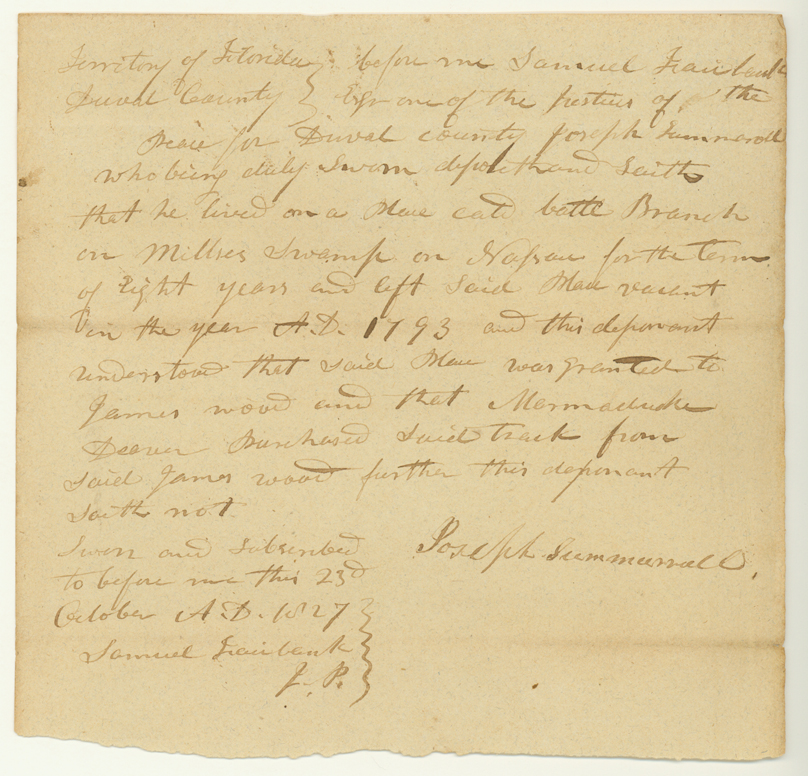 Territory of Florida } before me Samuel Fairbank
Duval County } Esqr one of the justices of the
Peace for Duval county Joseph Summerall
who being duly Sworn deposeth and Saith
that he lived on a Place cald battle Branch
on Millses Swamp on Nassau for the term
of Eight years and left Said Place vacant
in the year A.D. 1793 and this deponant
understood that Said Place was granted to
James wood and that Marmaduke
Deaver Purchased Said track from
Said James wood further this deponant
Saith not
Sworn and Subscribed
to before me this 23d
October A.D. 1827
Samuel Fairbank
J. P.
Joseph Summerall